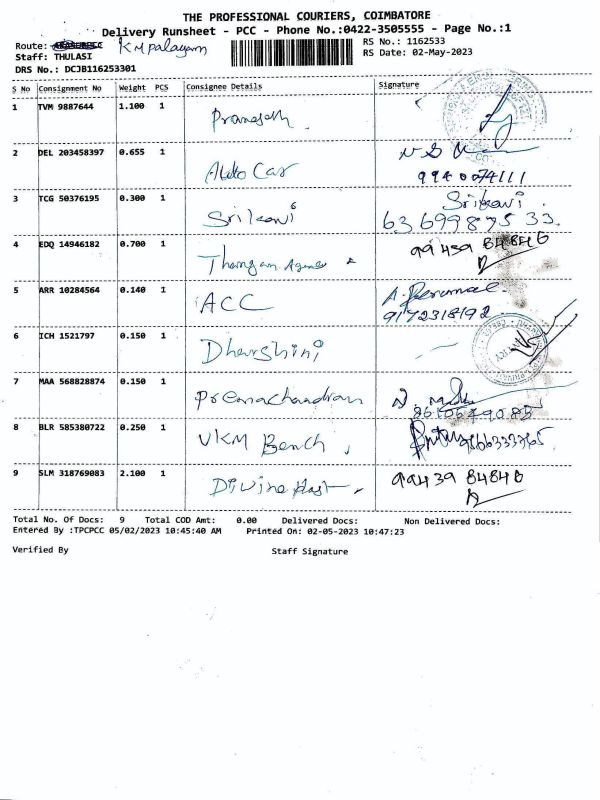 THE PROFESSIONAL COURIERS, COIMBATORE
Delivery Runsheet - PCC - Phone No.:0422-3505555 - Page No.:1
Route: K M palayam
RS No.: 1162533
Staff: THULASI
RS Date: 02-May-2023
DRS No.: DCJB116253301
S No Consignment No Weight PCS Consignee Details Signature
1 TVM 9887644 1.100 1 Pranesh
2 DEL 203458397 0.655 1 Auto Car
9940074111
3 TCG 50376195 0.300 1 Srikani Srikani
63 699875 33.
4 EDQ 14946182 0.700 1 Thangam Agencs 99439 84846
5 ARR 10284564 0.140 1 ACC A. Perumal
9172318192
6 ICH 1521797 0.150 1 Dharshini
7 MAA 568828874 0.150 1 Premachandran
8 BLR 585380722 0.250 1 VKM Bench 9566333765
9 SLM 318769083 2.100 1 Divine 99439 84848
Total No. Of Docs: 9 Total COD Amt: 0.00 Delivered Docs: Non Delivered Docs:
Entered By :TPCPCC 05/02/2023 10:45:40 AM Printed On: 02-05-2023 10:47:23
Verified By Staff Signature